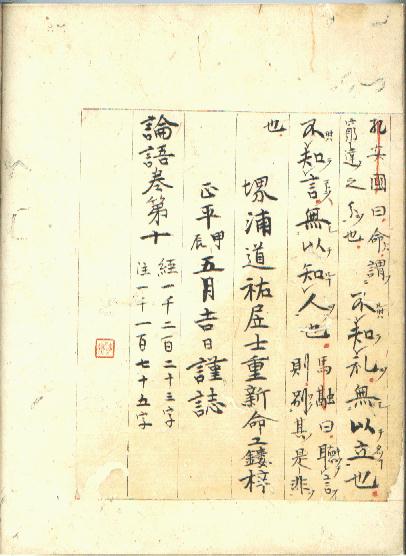 孔安國曰命謂
窮達之分也
不知礼無以立也
不知言無以知人也
馬融曰聽言
則別其是非
也
堺浦道祐居士重新命工鏤梓
正平甲辰五月吉日謹誌
論語卷第十
經一千二百二十三字
注一千一百七十五字